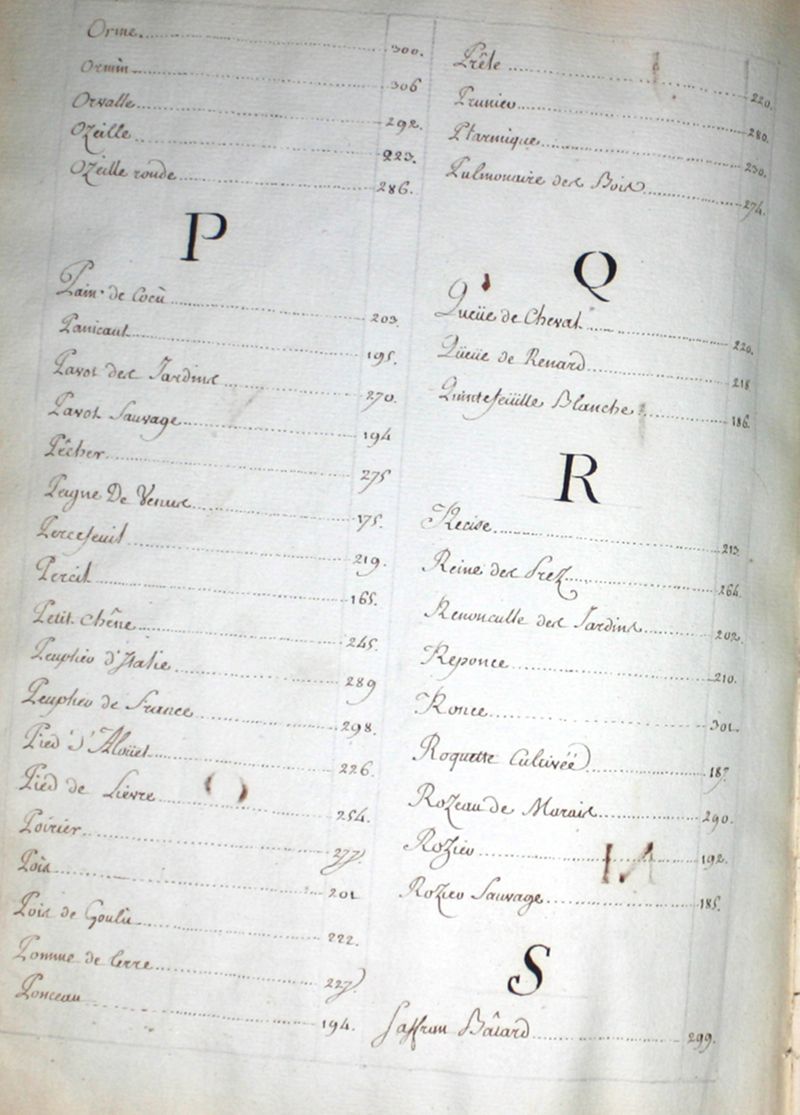 Orme 300.
Ormin 306
Orvalle 292.
Ozeille 223.
Ozeille ronde 286.
P
Pain de Cocu 203.
Panicaut 195.
Pavot des Jardins 270.
Pavot Sauvage 194
Pêcher 275
Peigne De Venus 175.
Percefeuil 219.
Percil 165.
Petit Chêne 245.
Peuplier d'Italie 289
Peuplier de France 298.
Pied d'Alouet 226.
Pied de Lievre 254.
Poirier 277
Pois 201
Pois de Goulu 222.
Pomme de terre 227
Ponceau 194.
Prêle 220.
Prunier 280.
Ptarmique 230.
Pulmonaire des Bois 274.
Q
Queüe de Cheval 220.
Queüe de Renard 218
Quintefeüille Blanche 186.
R
Recise 213.
Reine des Prez 264.
Renonculle des Jardins 202.
Reponce 210.
Ronce 301.
Roquette Cultivéé 187.
Rozeau de Marais 290.
Rozier 192.
Rozier Sauvage 185.
S
Saffran Bâtard 299.